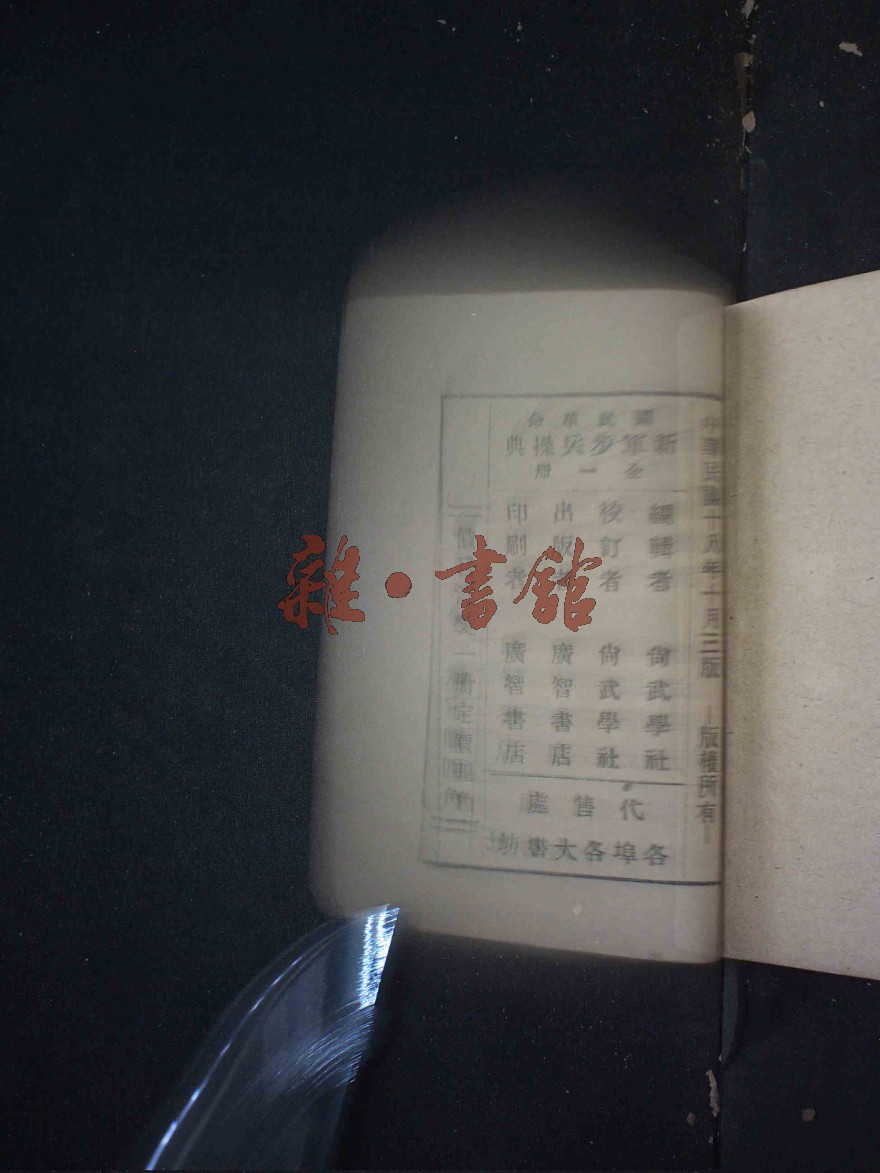 中華民國十八年一月三版 —版權所有—
國民革命
新軍步兵操典
全一冊
編輯者 尙武學社
校訂者 尙武學社
出版者 廣智書店
印刷者 廣智書店
代售處
各埠各大書坊
一册定價
雜·書館